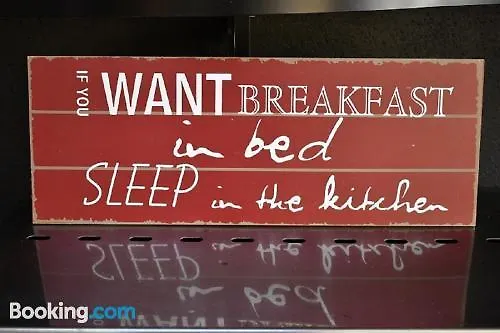 IF YOU WANT BREAKFAST
in bed
SLEEP in the kitchen
Booking.com